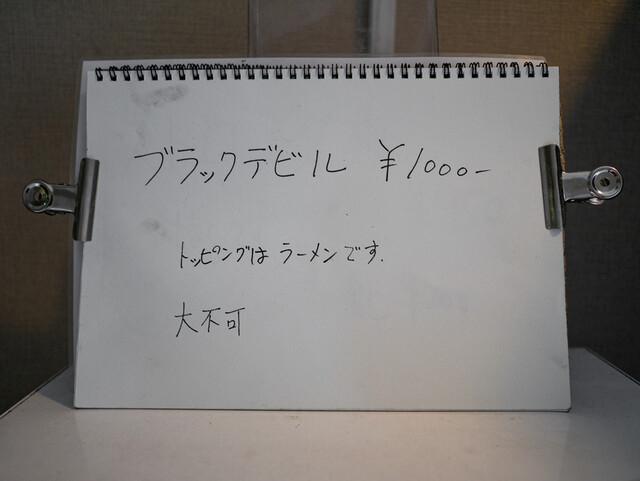 ブラックデビル ¥1000-
トッピングは ラーメンです.
大不可